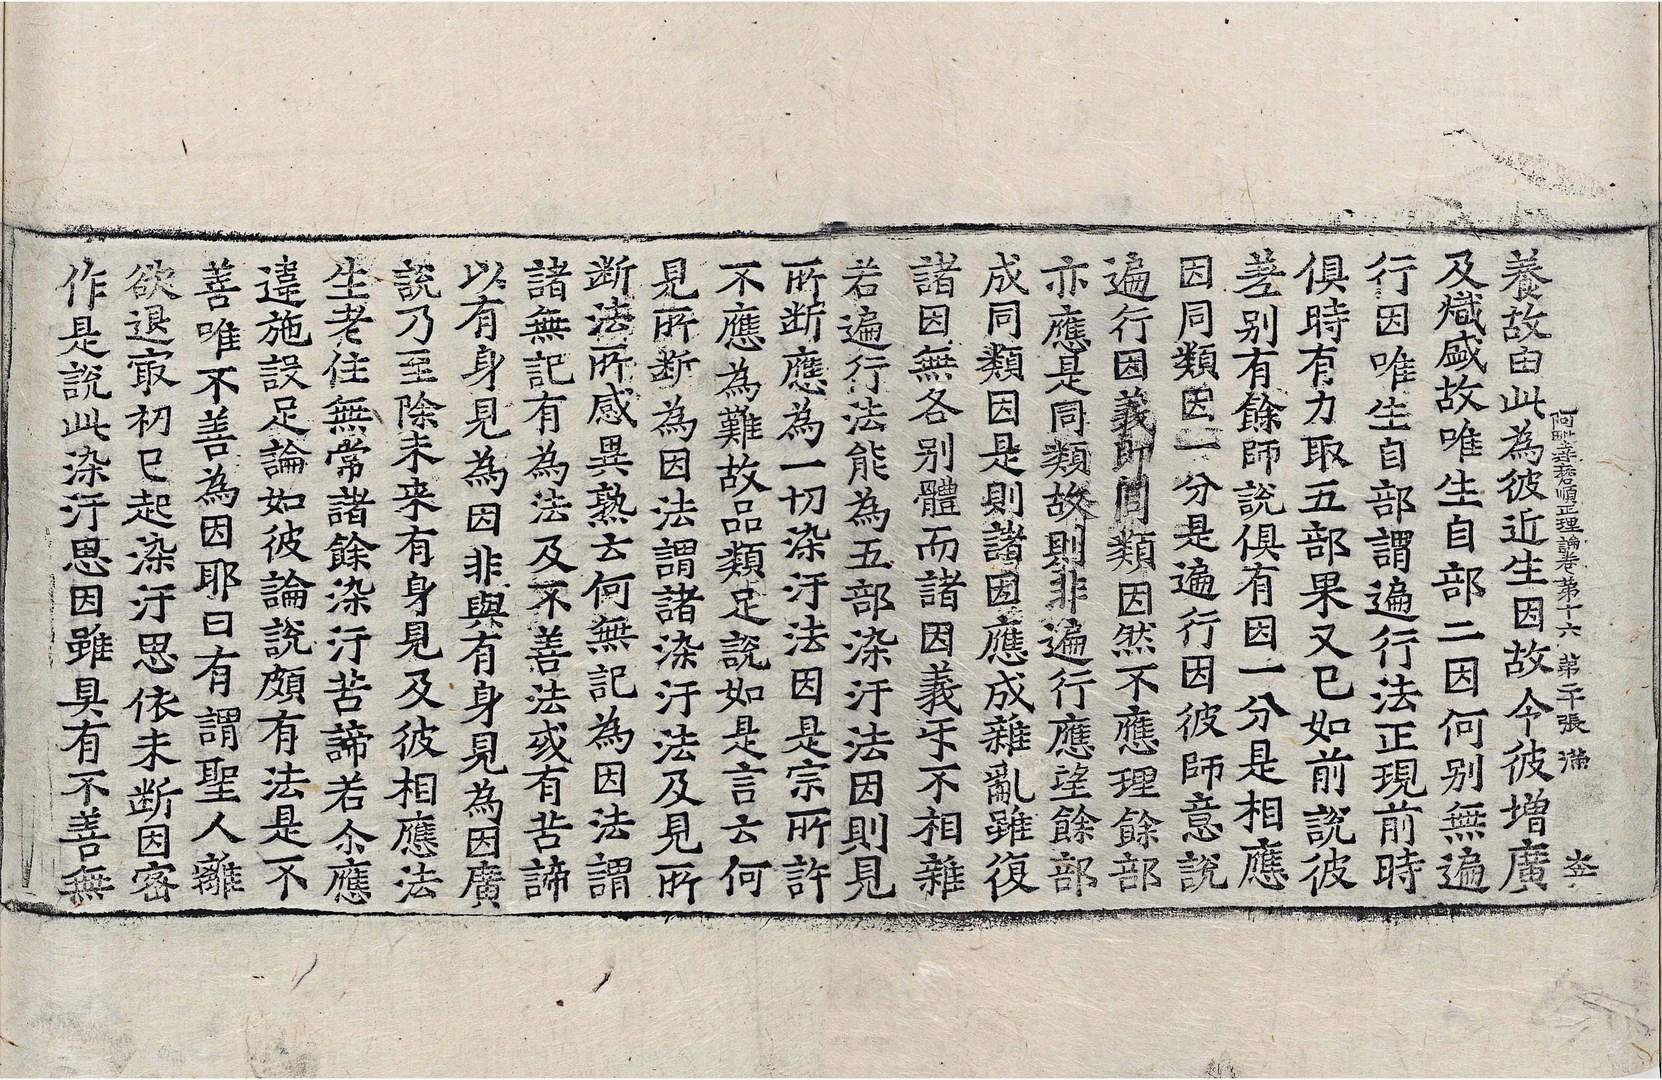 阿毗達磨順正理論卷第十六 第二十張 滿
養故由此為彼近生因故令彼增廣
及熾盛故唯生自部二因何別無遍
行因唯生自部謂遍行法正現前時
俱時有力取五部果又已如前說彼
差別有餘師說俱有因一分是相應
因同類因一分是遍行因彼師意說
遍行因義即同類因然不應理餘部
亦應是同類故則非遍行應望餘部
成同類因是則諸因應成雜亂雖復
諸因無各別體而諸因義㸦不相雜
若遍行法能為五部染汙法因則見
所断應為一切染汙法因是宗所許
不應為難故品類足說如是言云何
見所断為因法謂諸染汙法及見所
断法所感異熟云何無記為因法謂
諸無記有為法及不善法或有苦諦
以有身見為因非與有身見為因廣
說乃至除未来有身見及彼相應法
生老住無常諸餘染汙苦諦若尒應
違施設足論如彼論說頗有法是不
善唯不善為因耶曰有謂聖人離
欲退冣初已起染汙思依未断因密
作是說此染汙思因雖具有不善無